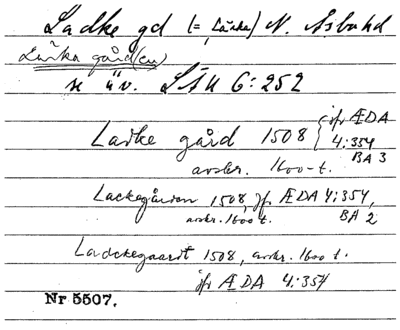 Ladke gd (= Lärka) N. Åsbo hd
Lärka gård(en)
se äv. LSU 6:252
Ladke gård 1508 { jfr ÆDA
4:354
BA 3
avskr. 1600-t.
Lackegården 1508, jfr ÆDA 4:354,
avskr. 1600 t. BA 2
Ladckegaardt 1508, avskr. 1600 t.
jfr ÆDA 4:354
Nr 5507.